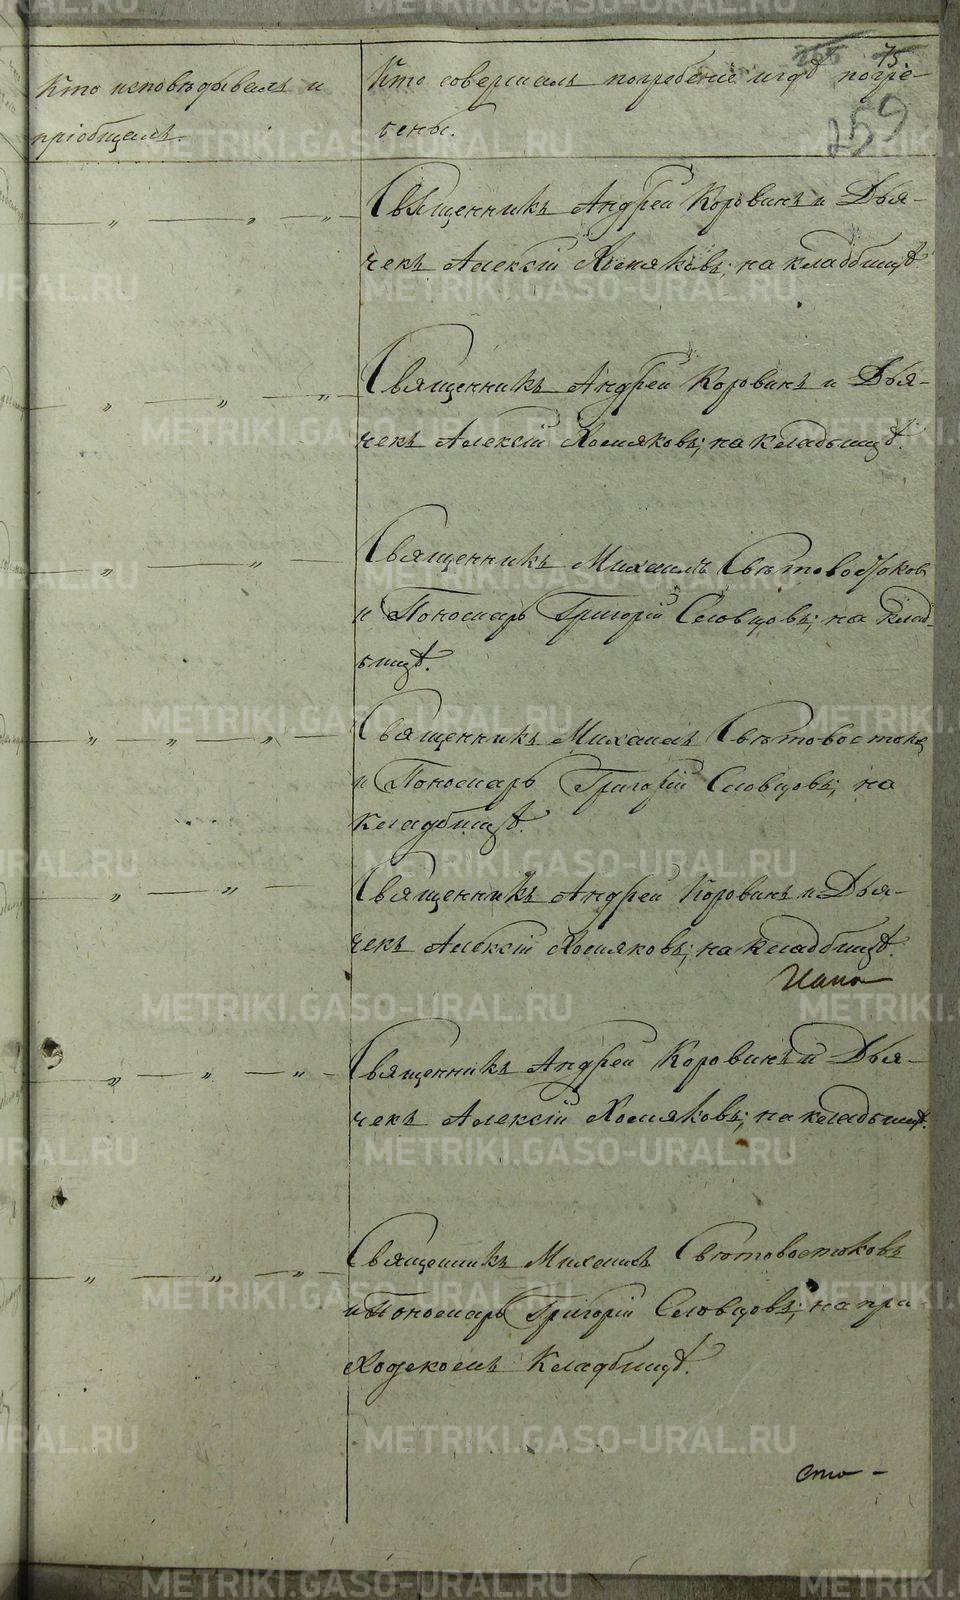 75
259
Кто исповѣдывалъ и
пріобщалъ.
Кто совершалъ погребеніе и гдѣ погре-
бены.
Священникъ Андрей Коровинъ и Дья-
чекъ Алексій Хомяковъ; на кладбищѣ
Священникъ Андрей Коровинъ и Дья-
чекъ Алексій Хомяковъ; на кладбищѣ.
Священникъ Михаилъ Свѣтовостоковъ
и Пономарь Григорій Словцовъ; на клад-
бищѣ.
Священникъ Михаилъ Свѣтовостоковъ
и Пономарь Григорій Словцовъ; на
кладбищѣ.
Священникъ Андрей Коровинъ и Дья-
чекъ Алексій Хомяковъ; на кладбищѣ.
Священникъ Андрей Коровинъ и Дья-
чекъ Алексій Хомяковъ; на кладбищѣ.
Священникъ Михаилъ Свѣтовостоковъ
и Пономарь Григорій Словцовъ; на при-
ходскомъ кладбищѣ.
сто-
METRIKI.GASO-URAL.RU